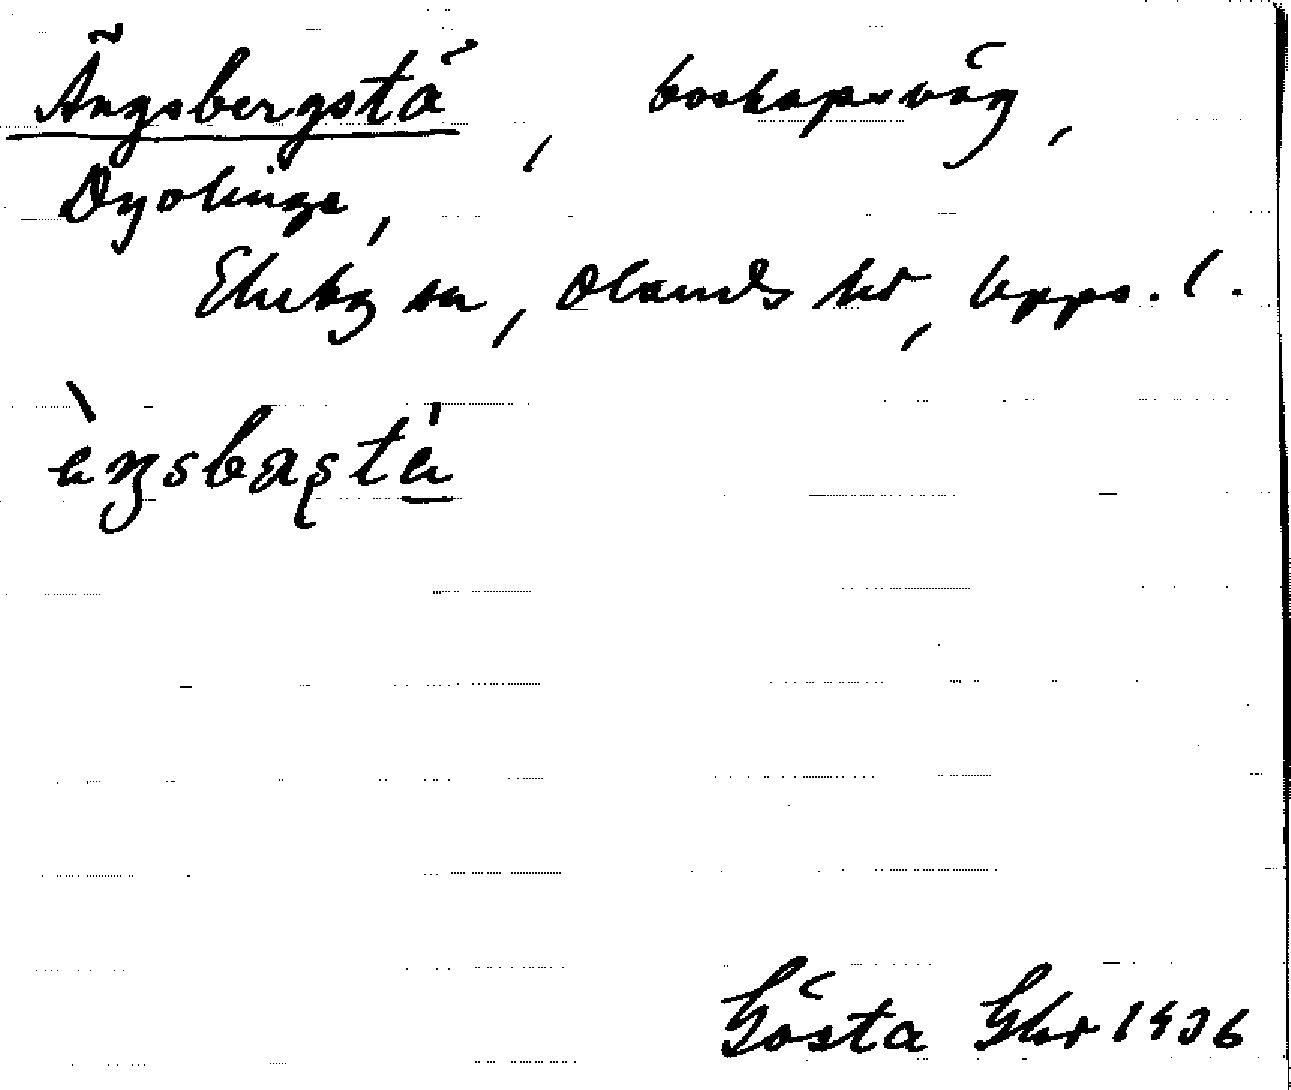 Ängsbergstå, boskapsväg,
Dyolinge,
Ekeby sn, Olands hd, Upps. l.
Gösta Ehr 1936